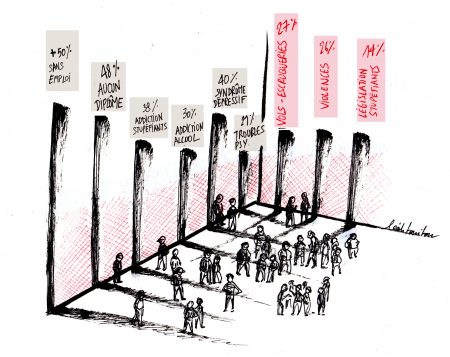 +50%
SANS
EMPLOI
48%
AUCUN
DIPLÔME
38%
ADDICTION
STUPÉFIANTS
30%
ADDICTION
ALCOOL
40%
SYNDRÔME
DÉPRESSIF
21%
TROUBLES
PSY.
27%
VOLS-ESCROQUERIES
26%
VIOLENCES
14%
LÉGISLATION
STUPÉFIANTS